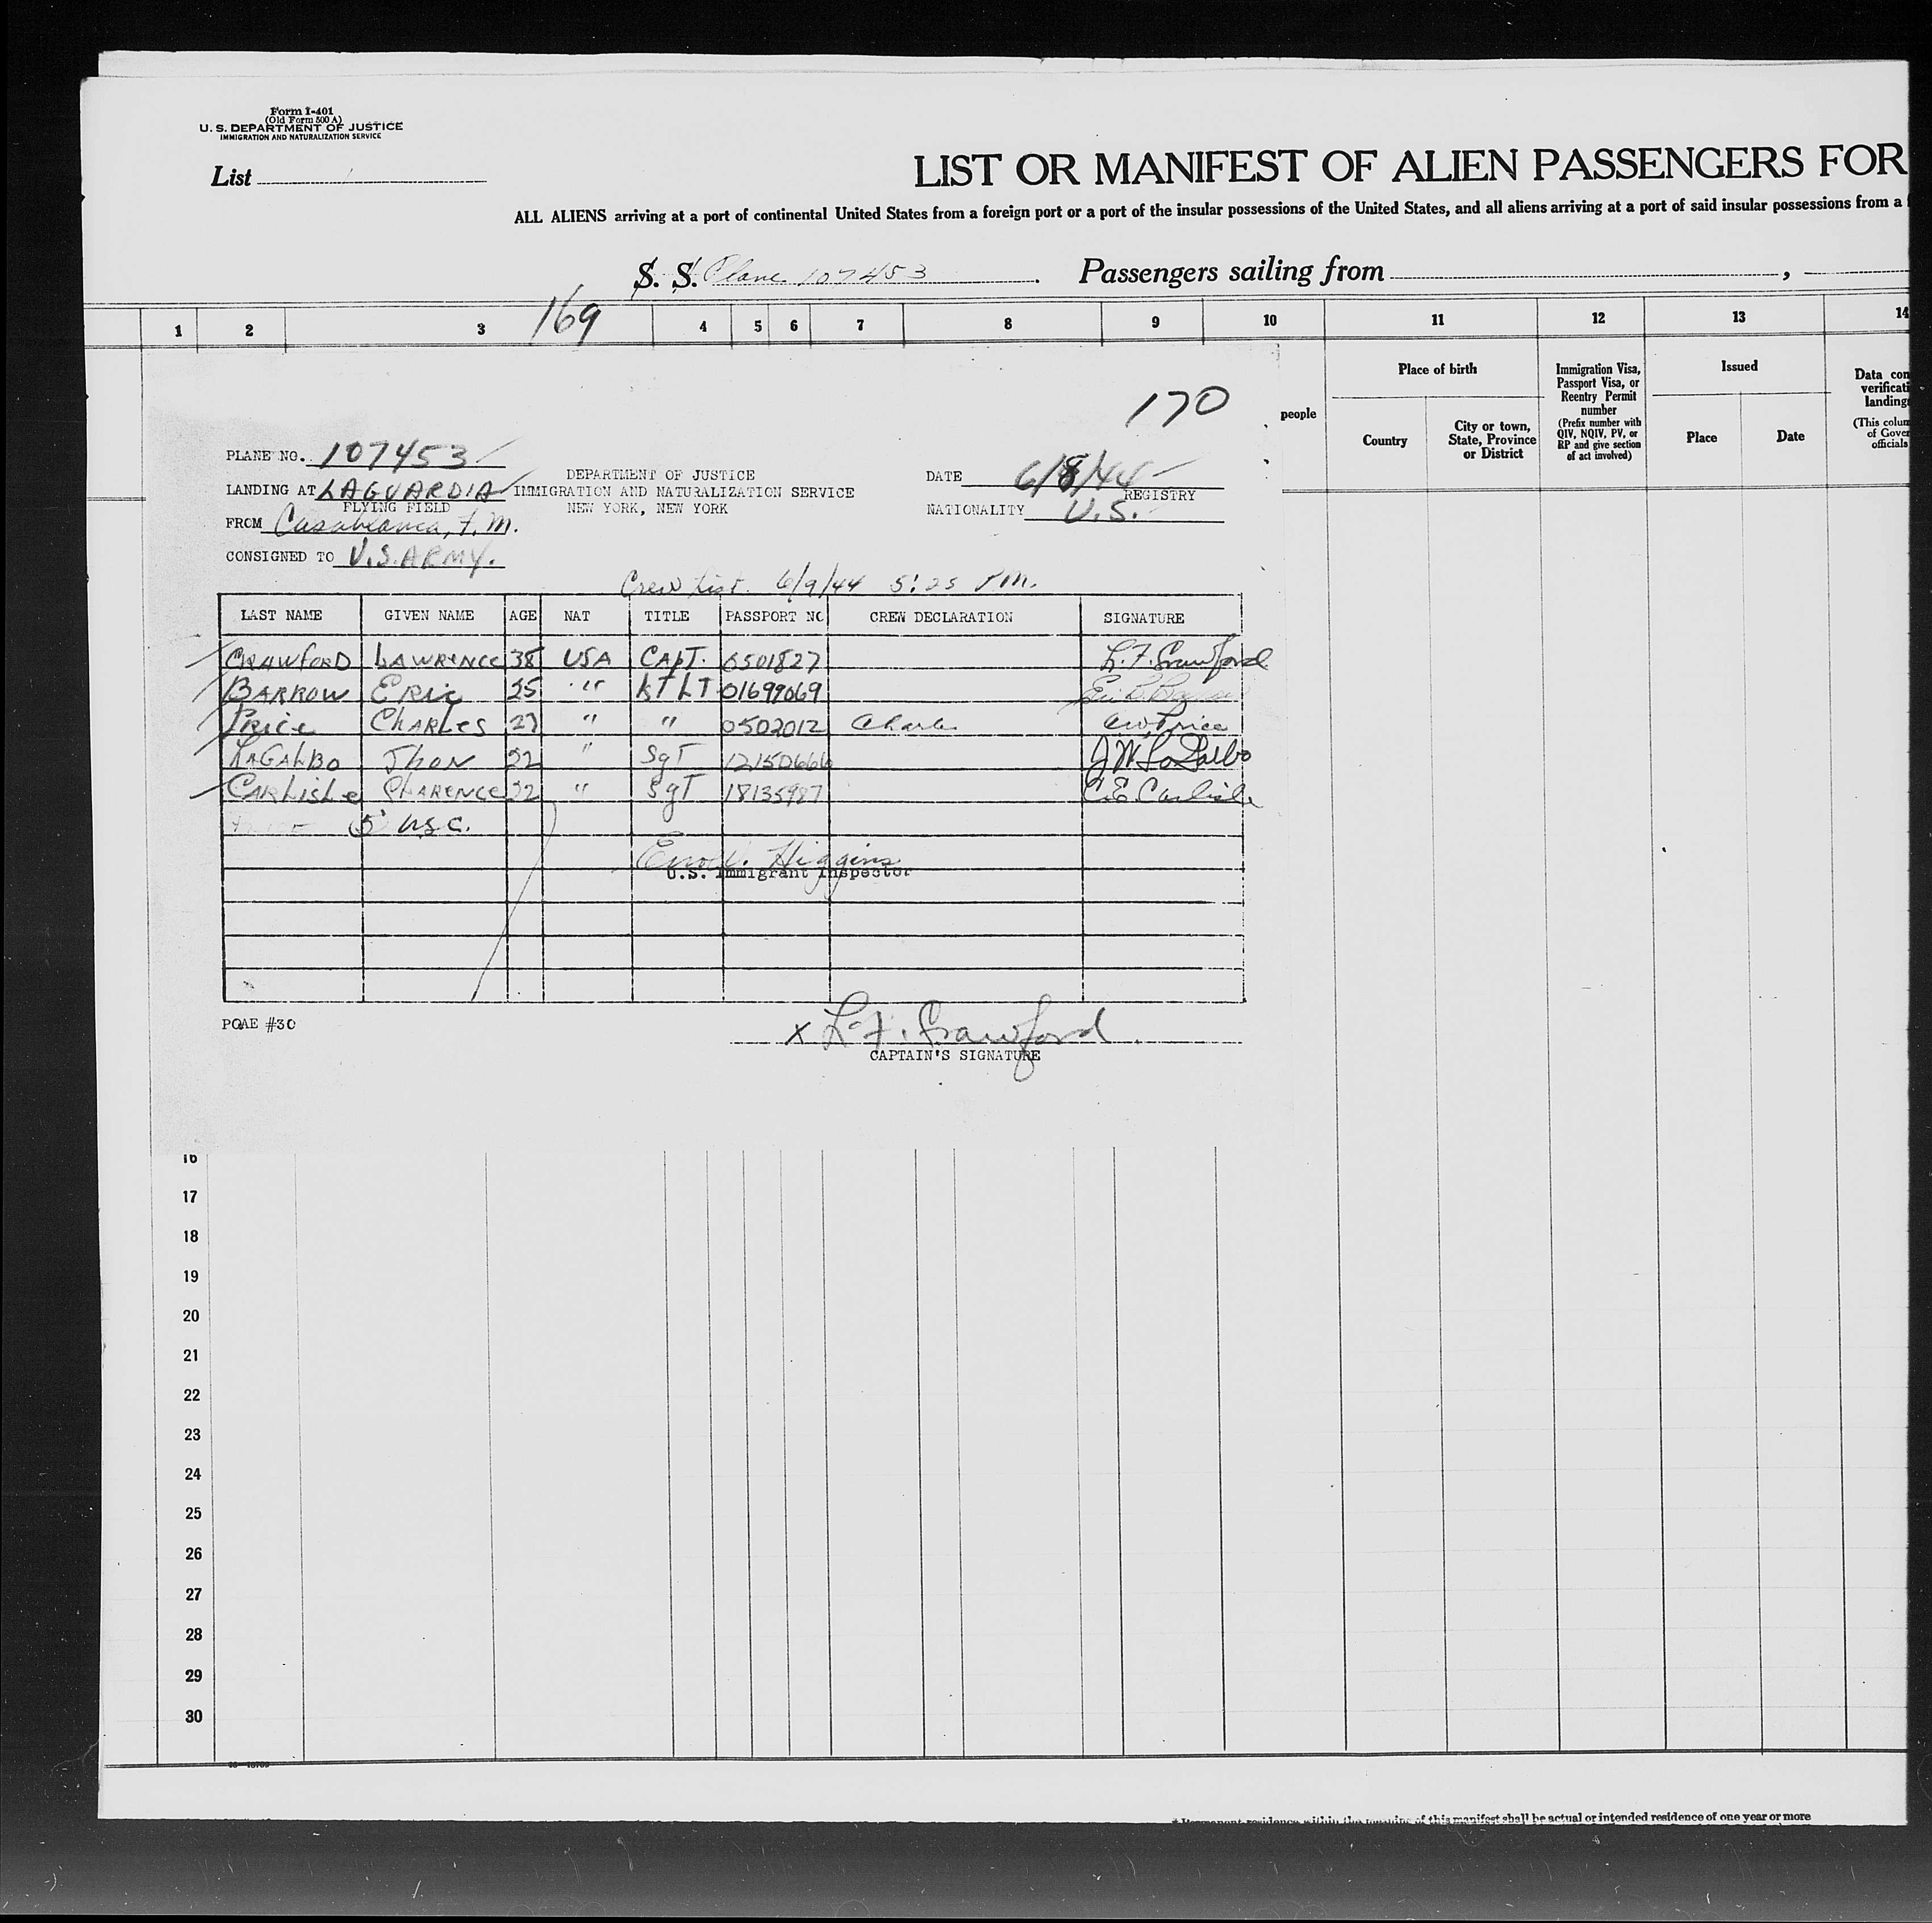 Form I-401
(Old Form 500 A)
U. S. DEPARTMENT OF JUSTICE
IMMIGRATION AND NATURALIZATION SERVICE
List
LIST OR MANIFEST OF ALIEN PASSENGERS FOR
ALL ALIENS arriving at a port of continental United States from a foreign port or a port of the insular possessions of the United States, and all aliens arriving at a port of said insular possessions from a
S. S. Plane 107453 . Passengers sailing from ,
169
1 2 3 4 5 6 7 8 9 10 11 12 13 14
people
Place of birth
Country
City or town, State, Province or District
Immigration Visa, Passport Visa, or Reentry Permit number
(Prefix number with QIV, NQIV, PV, or RP and give section of act involved)
Issued
Place Date
Data con
verificati
landing
(This colum
of Gover
officials
170
PLANE NO. 107453
LANDING AT LAGUARDIA
FLYING FIELD
FROM Casablanca, F. M.
CONSIGNED TO U.S. ARMY.
DEPARTMENT OF JUSTICE
IMMIGRATION AND NATURALIZATION SERVICE
NEW YORK, NEW YORK
DATE 6/8/44
REGISTRY
NATIONALITY U.S.
Crew List. 6/9/44 5:25 P.M.
LAST NAME GIVEN NAME AGE NAT TITLE PASSPORT NO CREW DECLARATION SIGNATURE
CRAWFORD LAWRENCE 38 USA CAPT. 0501827 L.F. Crawford
BARROW ERIC 25 " 1ST LT 01699069
PRICE CHARLES 27 " " 0502012 Charles C.W. Price
LAGALBO JHON 22 " SgT 12150666 J W LoGalbo
CARLISLE CLARENCE 22 " SgT 18135987 C.E. Carlisle
5 USC.
Higgins
U.S. Immigrant Inspector
POAE #30
x L. F. Crawford
CAPTAIN'S SIGNATURE
16
17
18
19
20
21
22
23
24
25
26
27
28
29
30
* Permanent residence within the meaning of this manifest shall be actual or intended residence of one year or more